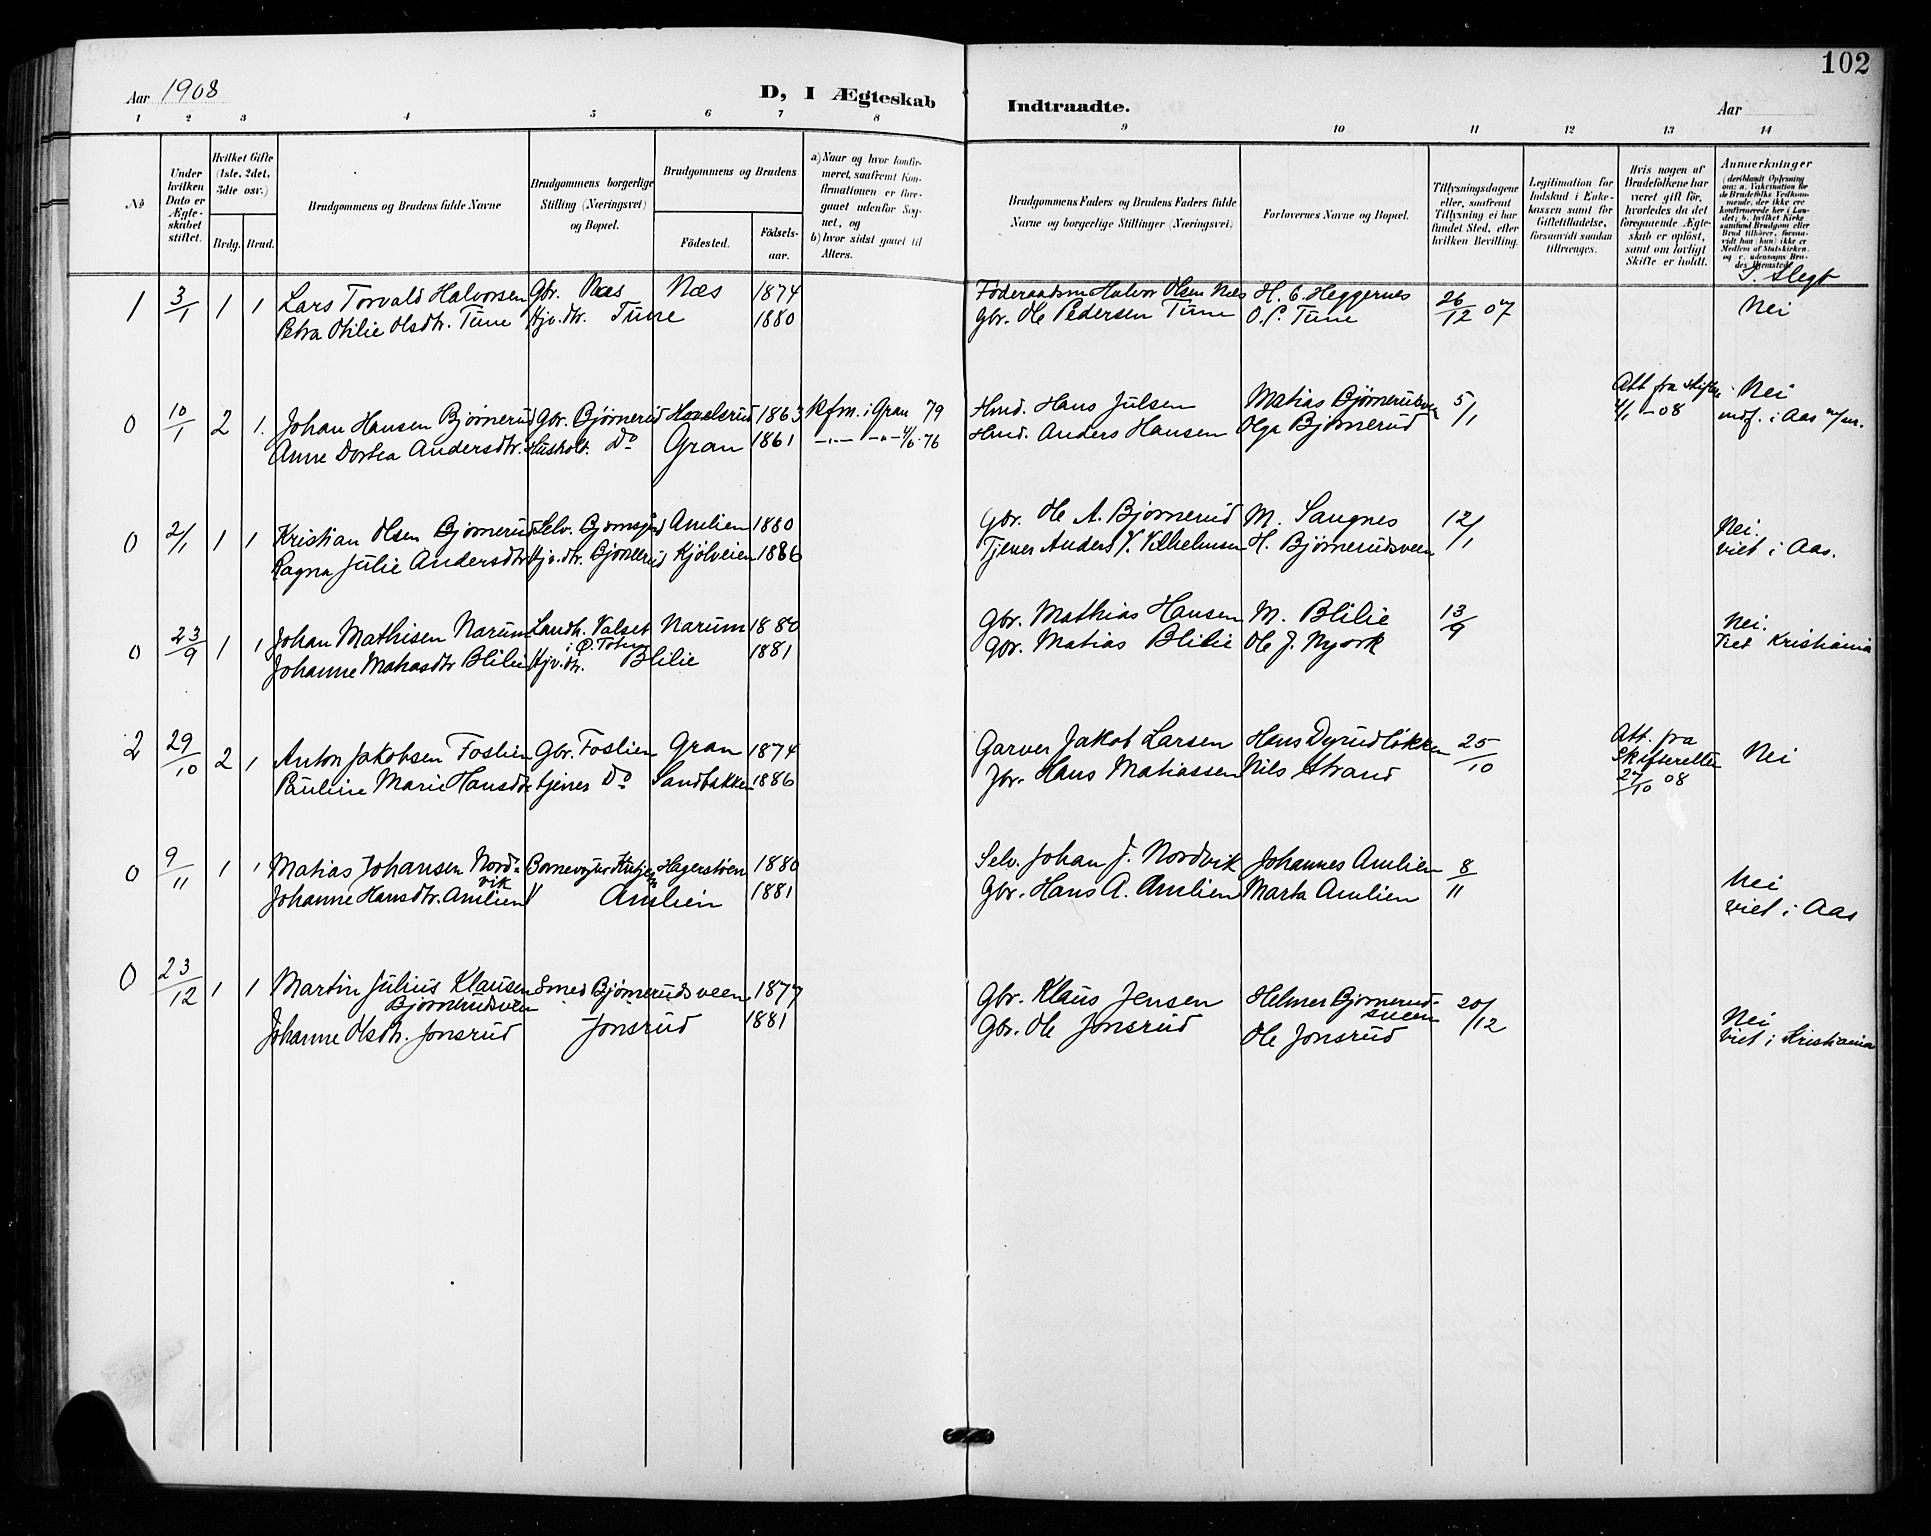 102
Aar 1908 D, I Ægteskab Indtraadte. Aar
1 2 3 4 5 6 7 8 9 10 11 12 13 14
No
Under hvilken Dato er Ægteskabet stiftet.
Hvilket Gifte (1ste, 2det, 3die osv.)
Brdg. Brud.
Brudgommens og Brudens fulde Navne
Brudgommens borgerlige Stilling (Næringsvei) og Bopæl.
Brudgommens og Brudens
Fødested. Fødselsaar.
a) Naar og hvor konfirmeret, saafremt Konfirmationen er foregaaet udenfor Sognet, og
b) hvor sidst gaaet til Alters.
Brudgommens Faders og Brudens Faders fulde Navne og borgerlige Stillinger (Næringsvei)
Forlovernes Navne og Bopæl.
Tillysningsdagene eller, saafremt Tillysning ei har fundet Sted, efter hvilken Bevilling.
Legitimation for Indskud i Enkekassen samt for Giftetilladelse, forsaavidt saadan tiltrænges.
Hvis nogen af Brudefolkene har været gift før, hvorledes da det foregaaende Ægteskab er opløst, samt om lovligt Skifte er holdt.
Anmerkninger (deriblandt Oplysning om: a. Vakcination for de Brudefolks Vedkommende, der ikke ere konfirmerede her i Landet; b. hvilket Kirkesamfund Brudgom eller Brud tilhører, forsaavidt han (hun) ikke er Medlem af Statskirken, og c. udensogns Brudes Hjemsted.
S. Slegt
1 3/1 1 1 Lars Torvald Halvorsen Gbr. Næs Næs 1874 Føderaadsm Halvor Olsen Næs H. C. Heggernes 26/12 07 Nei
Petra Otilie Olsdtr. Tune Hjv. dtr. Tune 1880 Gbr. Ole Pedersen Tune O. P. Tune
0 10/1 2 1. Johan Hansen Bjørnerud Gbr. Bjørnerud Hovelsrud 1863 Kfm. i Gran 79 Hmd. Hans Julsen Matias Bjørnerudsven 5/1 Att. fra skifter 4/1 -08 Nei
Anne Dortea Andersdtr. Hushold. Do Gran 1861 4/6 76 Hmd. Anders Hansen Olga Bjørnerud indf. i Aas
0 21/1 1 1 Kristian Olsen Bjørnerud Selv. Bjørnsgård Amlien 1880 Gbr. Ole A. Bjørnerud M. Sangnes 12/1 Nei.
Ragna Julie Andersdtr Hjv. dtr. Bjørnerud Kjølveien 1886 Tjener Anders V. Vilhelmsen H. Bjørnerudsveen viet i Aas.
0 23/9 1 1 Johan Mathisen Narum Landh. Valset i Ø. Toten Narum 1880 Gbr. Mathias Hansen M. Blilie 13/9 Nei.
Johanne Matiasdtr Blilie Hjv. dtr. Blilie 1881 Gbr. Matias Blilie Ole J. Nyork Viet Kristiania
2 29/10 2 1 Anton Jakobsen Foslien Gbr. Foslien Gran 1874 Garver Jakob Larsen Hans Dyrudløkken 25/10 Att. fra Skifteretten 27/10 08 Nei
Pauline Marie Hansdtr tjenes Do Sandbakken 1886 Gbr. Hans Matiassen Nils Strand
0 9/11 1 1 Matias Johansen Nordvik Hagerstøen 1880 Selv. Johan J. Nordvik Johannes Amlien 8/11 Nei
Johanne Hansdtr. Amlien " Amlien 1881 Gbr. Hans A. Amlien Marta Amlien viet i Aas
0 23/12 1 1 Martin Julius Klausen Bjørnerudsveen Smed Bjørnerudsveen 1877 Gbr. Klaus Jensen Helmer Bjørnerudsveen 20/12 Nei
Johanne Olsdtr. Jonsrud Jonsrud 1881 Gbr. Ole Jonsrud Ole Jonsrud viet i Kristiania